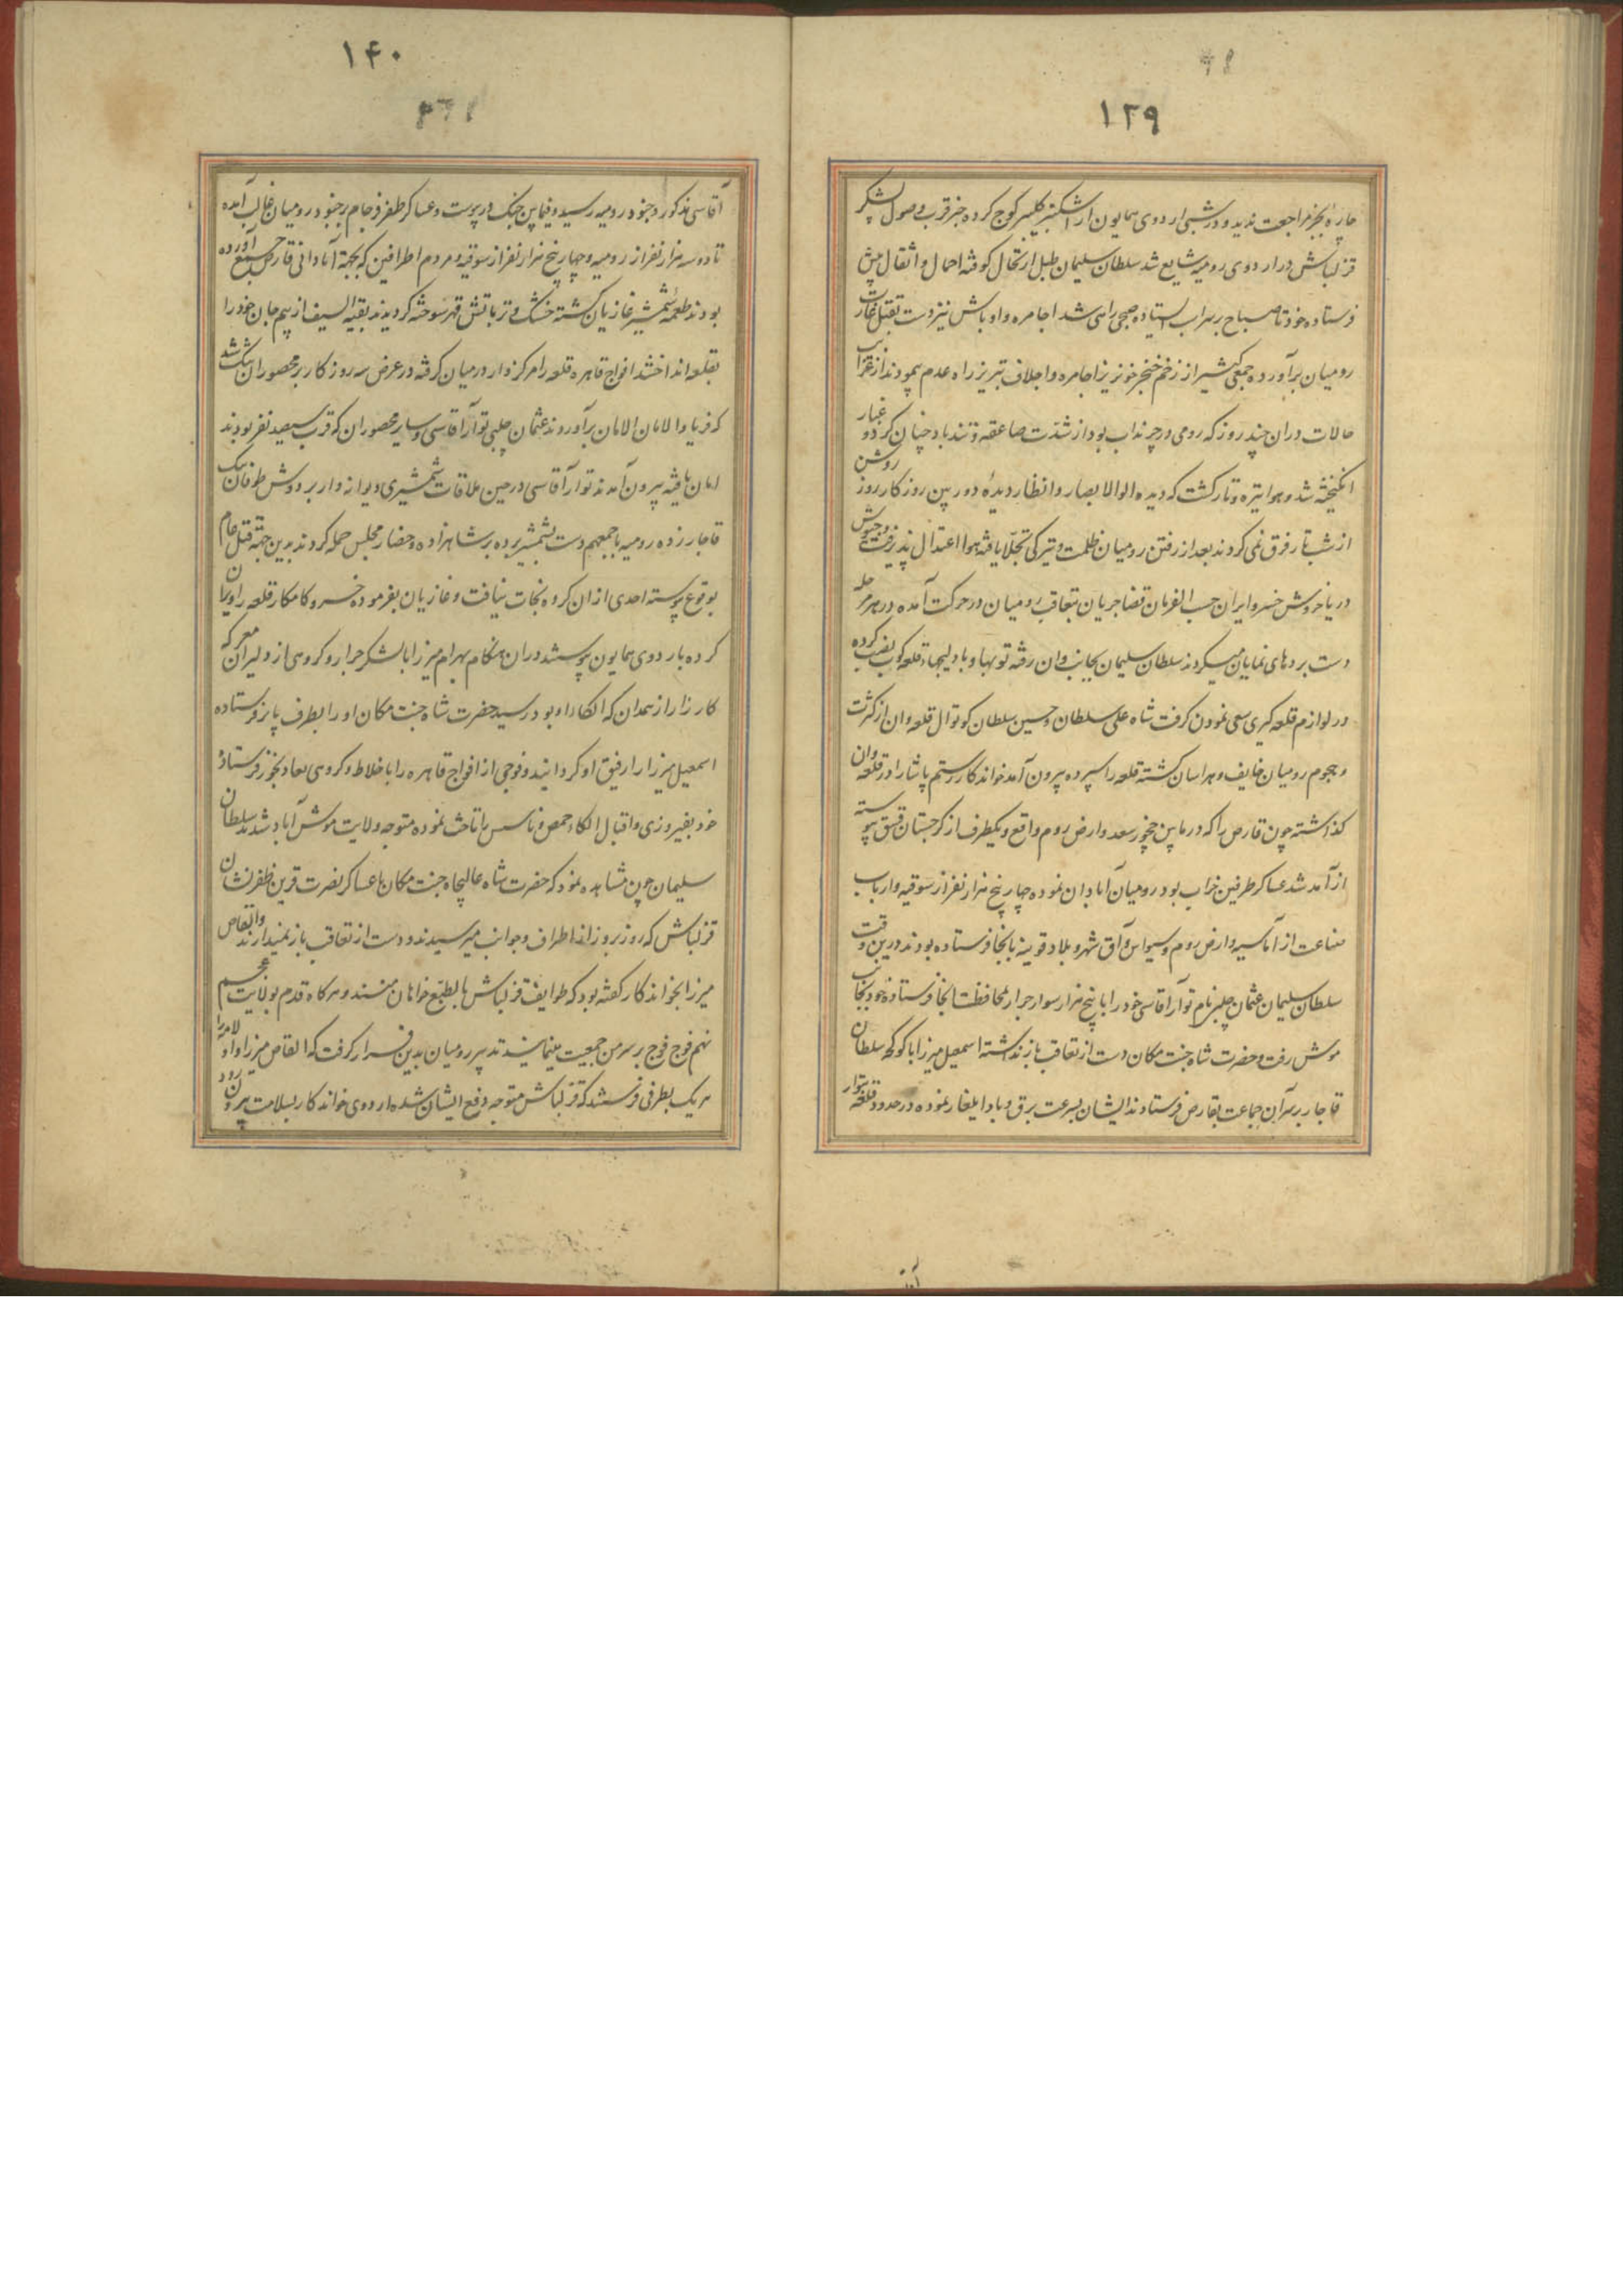 ۱۳۹
چاره بجز مراجعت ندید و در شبی اردوی همایون از اشکنبر کلیبر کوچ کرده خبر قرب وصول لشکر
قزلباش در اردوی رومیه شایع شد سلطان سلیمان طبل ارتحال کوفته احمال و اثقال پیش
فرستاده خود تا صباح بر سر آب ایستاده صبحی راهی شد اجامره و اوباش نیز دست بقتل و غارت
رومیان برآورده جمعی کثیر از زخم خنجر خونریز اجامره و اجلاف تبریز راه عدم پیمودند از غرایب
حالات در آن چند روز که رومی در چرنداب بود از شدت صاعقه و تندباد چنان گرد و غبار
انگیخته شد و هوا تیره و تار گشت که دیده اولوالابصار و انظار دیدهٔ دوربین روز کار روز روشن
از شب تار فرق نمی کردند بعد از رفتن رومیان ظلمت و تیرکی تجلا یافته هوا اعتدال پذیرفت و جیوش
دریا خروش خسرو ایران حسب الفرمان قضا جریان بتعاقب رومیان در حرکت آمده در هر مرحله
دست بردهای نمایان میکردند سلطان سلیمان بجانب وان رفته توبها و بادلیجها قلعه کوب نصب کرده
در لوازم قلعه کیری سعی نمودن کرفت شاه علی سلطان و حسین سلطان کوتوال قلعه وان از کثرت
و هجوم رومیان خایف و هراسان کشته قلعه را سپرده بیرون آمد خواندکار رستم پاشا را در قلعه وان
کذاشته چون قارص را که در مابین چخور سعد و ارض روم واقع و یکطرف از کرجستان قسق پیوسته
از آمد شد عساکر طرفین خراب بود رومیان آبادان نموده چهار پنج هزار نفر از سوقیه و ارباب
صناعت از آماسیه و ارض روم و سیواس و آق شهر و بلاد قونیه بانجا فرستاده بودند درین وقت
سلطان سلیمان عثمان چلبی نام توآر آقاسی خود را با پنج هزار سوار جرار محافظت انجا فرستاده خود بجانب
موش رفت و حضرت شاه جنت مکان دست از تعاقب باز نداشته اسمعیل میرزا با کوکجه سلطان
قاجار بر سر آن جماعت بقارص فرستادند ایشان بسرعت برق و باد ایلغار نموده در حدود قلعه بتوار
۱۴۰
آقاسی مذکور و جنود رومیه رسید و فیمابین جنک در پیوست و عساکر ظفر فرجام بر جنود رومیان غالب آمده
تا دو سه هزار نفر از رومیه و چهار پنج هزار نفر از سوقیه و مردم اطرافین که بجهة آبادانی قارص جمع آورده
بودند طعمهٔ شمشیر غازیان کشته خشک و تر باتش قهر سوخته کردیدند بقیه السیف از بیم جان خود را
بقلعه انداختند افواج قاهره قلعه را مرکزوار در میان کرفته در عرض سه روز کار بر محصوران تنک شد
که فریاد الامان الامان برآوردند عثمان چلبی توآر آقاسی و سایر محصوران که قرب سیصد نفر بودند
امان یافته بیرون آمدند توآر آقاسی در حین ملاقات شمشیری دیوانه وار بر دوش طوفان بیک
قاجار زده رومیه باجمعهم دست بشمشیر برده بر شاهزاده و حضار مجلس حمله کردند بدین جهته قتل عام
بوقوع پیوسته احدی از ان کروه نجات نیافت و غازیان بفرموده خسرو کامکار قلعه را ویران
کرده باردوی همایون پیوستند در ان هنکام بهرام میرزا با لشکر جرار و کروهی از دلیران معرکه
کارزار از همدان که الکاء او بود رسید حضرت شاه جنت مکان او را بطرف پابزو فرستاده
اسمعیل میرزا را رفیق او کردانید و فوجی از افواج قاهره را باخلاط و کروهی بعادلجوز فرستادهٔ
خود بفیروزی و اقبال الکاء خمص و ناسس را تاخت نموده متوجه ولایت موش آباد شدند سلطان
سلیمان چون مشاهده نمود که حضرت شاه عالیجاه جنت مکان با عساکر نصرت قرین ظفرنشان
قزلباش که روز بروز از اطراف و جوانب میرسیدند و دست از تعاقب باز نمیدارند و القاص
میرزا بخواندکار کفته بود که طوایف قزلباش بالطبع خواهان منند و هرکاه قدم بولایت عجم
نهم فوج فوج بر سر من جمعیت مینمایند تدبیر رومیان بدین قرار کرفت که القاص میرزا و اولامه را
هر یک بطرفی فرستند که قزلباش متوجه دفع ایشان شده اردوی خواندکار بسلامت بیرون رود